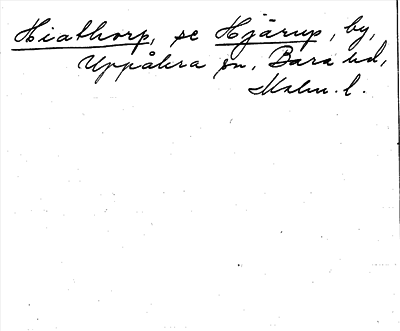 Hiathorp, se Hjärup, by,
Uppåkra sn, Bara hd,
Malm. l.